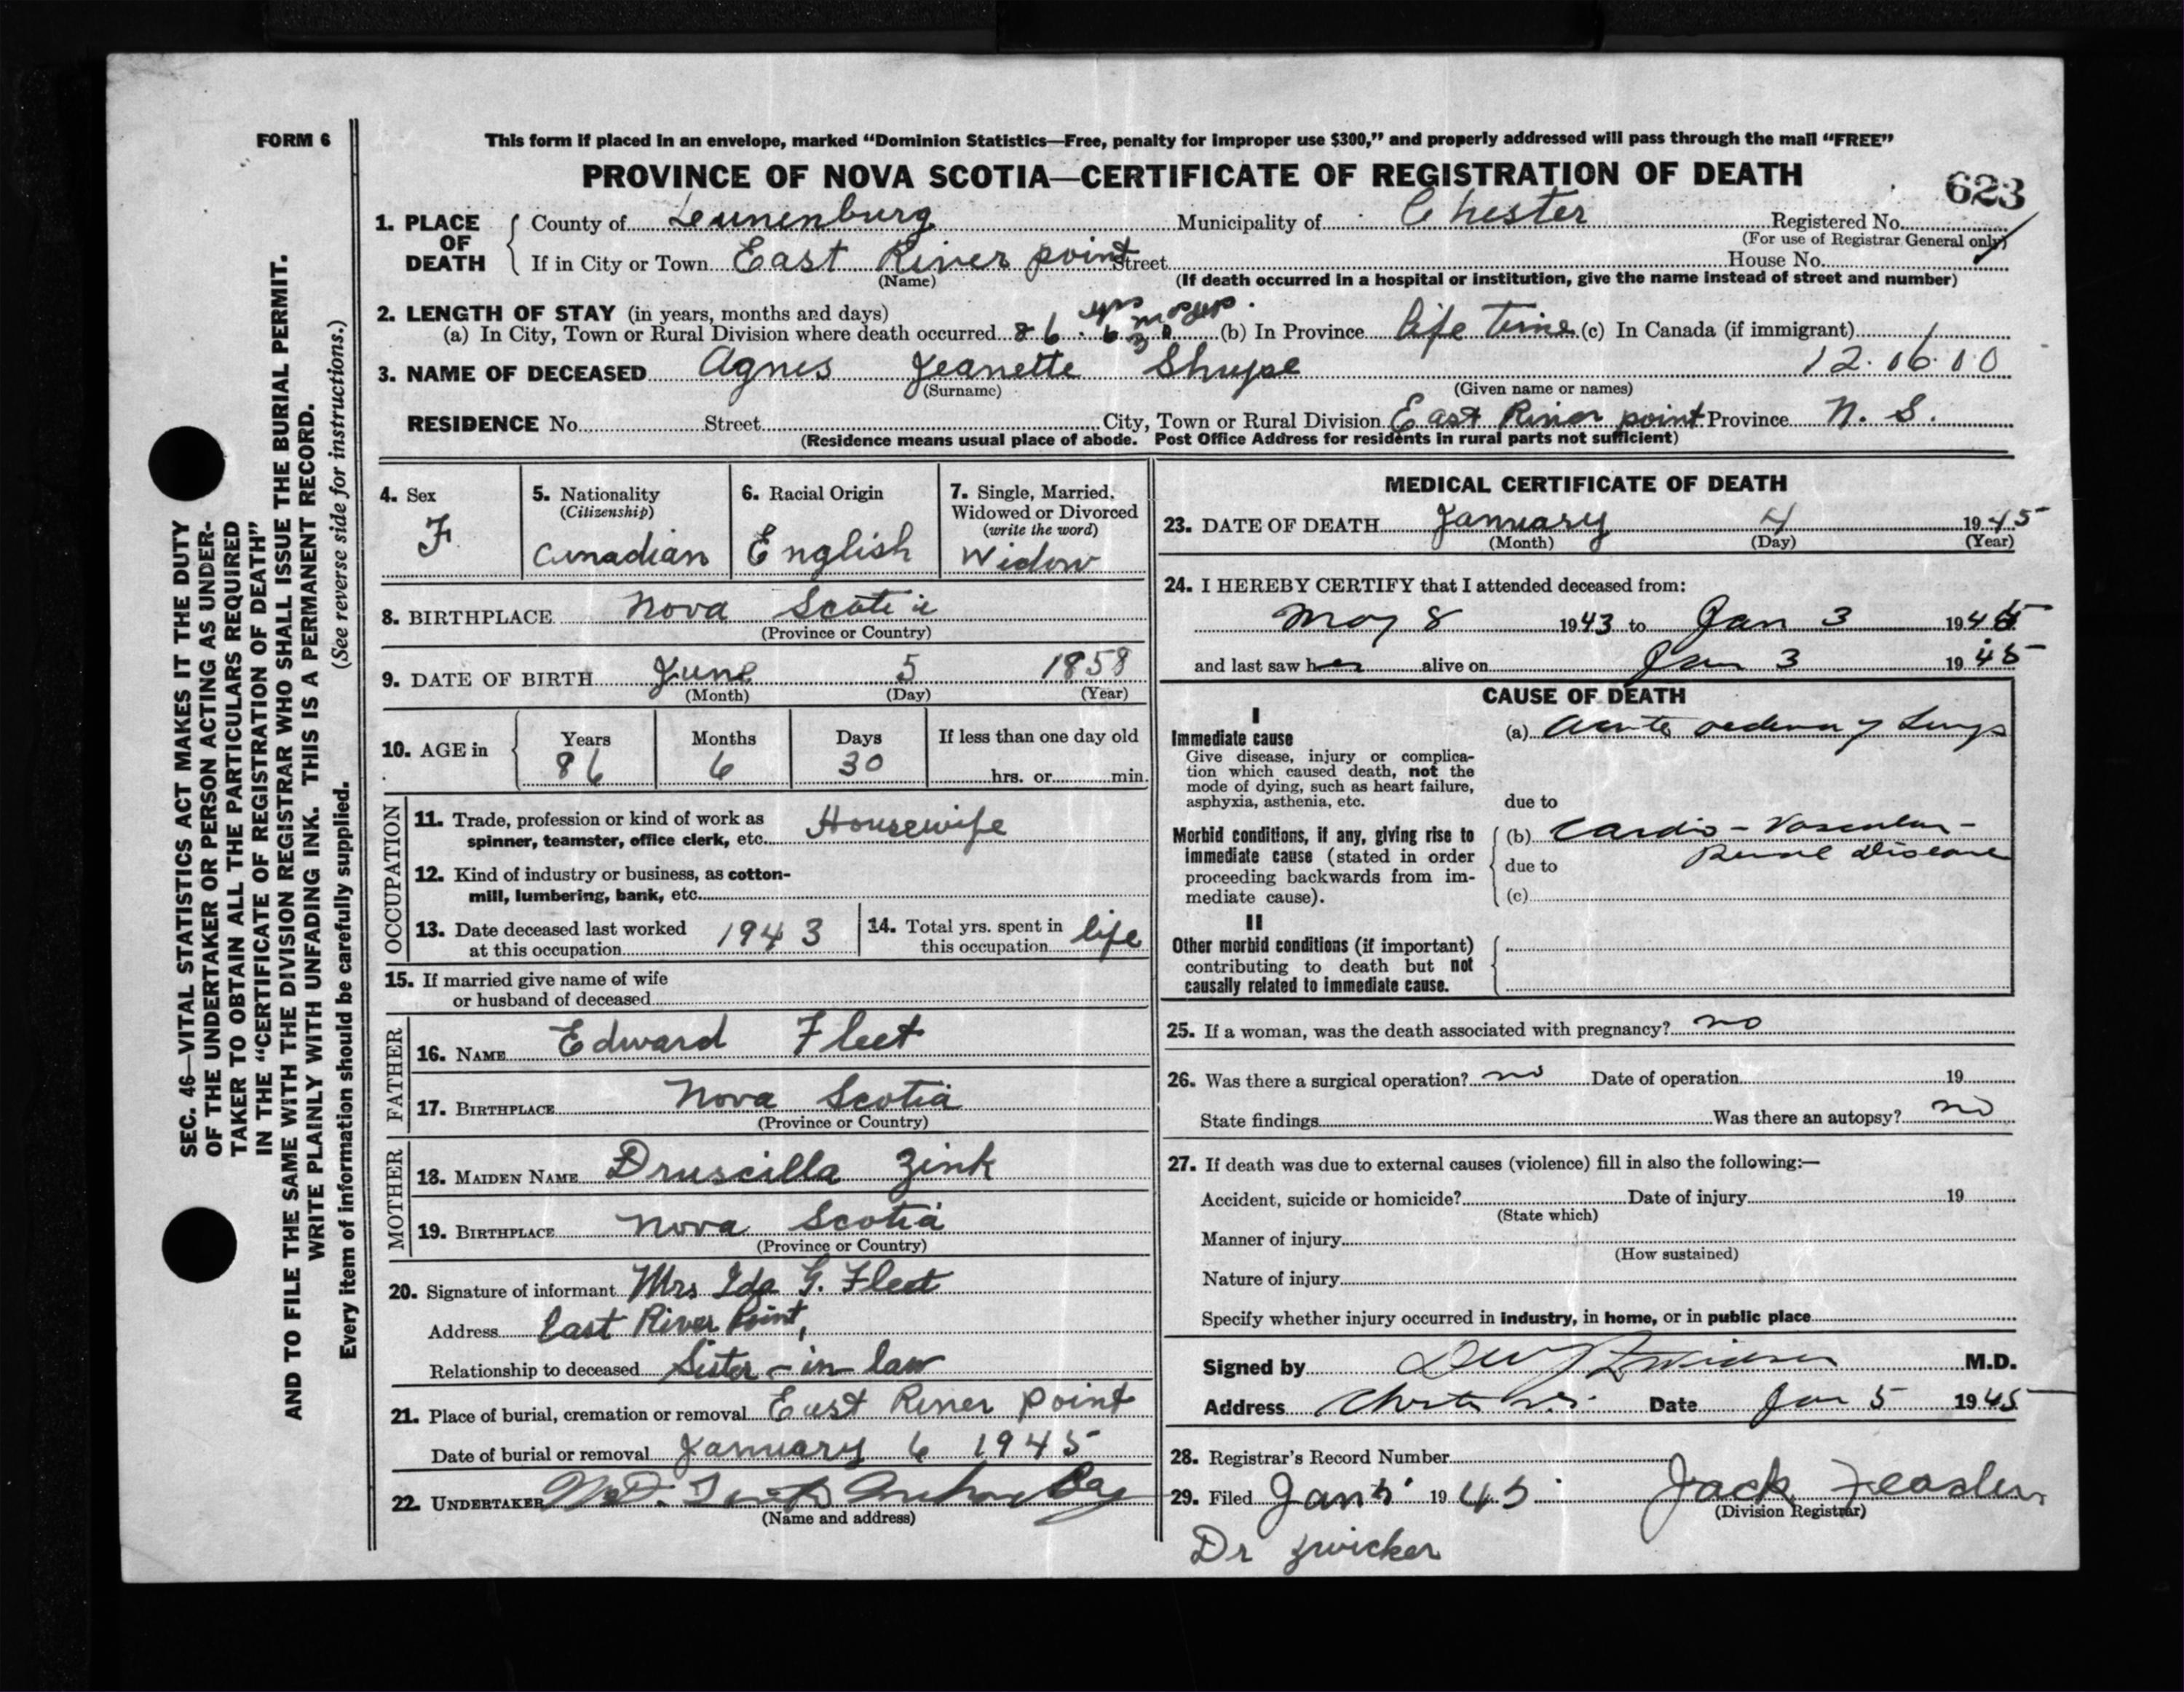 FORM 6
This form if placed in an envelope, marked “Dominion Statistics—Free, penalty for improper use $300,” and properly addressed will pass through the mail “FREE”
PROVINCE OF NOVA SCOTIA—CERTIFICATE OF REGISTRATION OF DEATH
623
1. PLACE OF DEATH
County of Lunenburg Municipality of Chester Registered No.
(For use of Registrar General only)
If in City or Town East River point Street House No.
(Name) (If death occurred in a hospital or institution, give the name instead of street and number)
2. LENGTH OF STAY (in years, months and days)
(a) In City, Town or Rural Division where death occurred 86 yrs 6 mos 30 days. (b) In Province life time (c) In Canada (if immigrant)
3. NAME OF DECEASED Agnes Jeanette Shupe 12.06.00
(Surname) (Given name or names)
RESIDENCE No. Street City, Town or Rural Division East River point Province N. S.
(Residence means usual place of abode. Post Office Address for residents in rural parts not sufficient)
4. Sex
F
5. Nationality
(Citizenship)
Canadian
6. Racial Origin
English
7. Single, Married, Widowed or Divorced
(write the word)
Widow
8. BIRTHPLACE Nova Scotia
(Province or Country)
9. DATE OF BIRTH June 5 1858
(Month) (Day) (Year)
10. AGE in Years Months Days If less than one day old
86 6 30 hrs. or min.
OCCUPATION
11. Trade, profession or kind of work as
spinner, teamster, office clerk, etc. Housewife
12. Kind of industry or business, as cotton-
mill, lumbering, bank, etc.
13. Date deceased last worked
at this occupation 1943
14. Total yrs. spent in
this occupation life
15. If married give name of wife
or husband of deceased
FATHER
16. NAME Edward Fleet
17. BIRTHPLACE Nova Scotia
(Province or Country)
MOTHER
18. MAIDEN NAME Druscilla Zink
19. BIRTHPLACE Nova Scotia
(Province or Country)
20. Signature of informant Mrs Ida G. Fleet
Address East River Point,
Relationship to deceased Sister-in-law
21. Place of burial, cremation or removal East River point
Date of burial or removal January 6 1945
22. UNDERTAKER
(Name and address)
MEDICAL CERTIFICATE OF DEATH
23. DATE OF DEATH January 4 1945
(Month) (Day) (Year)
24. I HEREBY CERTIFY that I attended deceased from:
May 8 1943 to Jan 3 1945
and last saw her alive on Jan 3 1945
CAUSE OF DEATH
I
Immediate cause
Give disease, injury or complica-
tion which caused death, not the
mode of dying, such as heart failure,
asphyxia, asthenia, etc.
(a) Acute oedema of Lungs
due to
Morbid conditions, if any, giving rise to
immediate cause (stated in order
proceeding backwards from im-
mediate cause).
(b) Cardio-Vascular-
Renal Disease
due to
(c)
II
Other morbid conditions (if important)
contributing to death but not
causally related to immediate cause.
25. If a woman, was the death associated with pregnancy? no
26. Was there a surgical operation? no Date of operation 19
State findings Was there an autopsy? no
27. If death was due to external causes (violence) fill in also the following:—
Accident, suicide or homicide? Date of injury 19
(State which)
Manner of injury
(How sustained)
Nature of injury
Specify whether injury occurred in industry, in home, or in public place
Signed by M.D.
Address Chester N.S. Date Jan 5 1945
28. Registrar's Record Number
29. Filed Jan 5 1945 Jack
(Division Registrar)
Dr Zwicker
SEC. 46—VITAL STATISTICS ACT MAKES IT THE DUTY
OF THE UNDERTAKER OR PERSON ACTING AS UNDER-
TAKER TO OBTAIN ALL THE PARTICULARS REQUIRED
IN THE “CERTIFICATE OF REGISTRATION OF DEATH”
AND TO FILE THE SAME WITH THE DIVISION REGISTRAR WHO SHALL ISSUE THE BURIAL PERMIT.
WRITE PLAINLY WITH UNFADING INK. THIS IS A PERMANENT RECORD.
Every item of information should be carefully supplied. (See reverse side for instructions.)